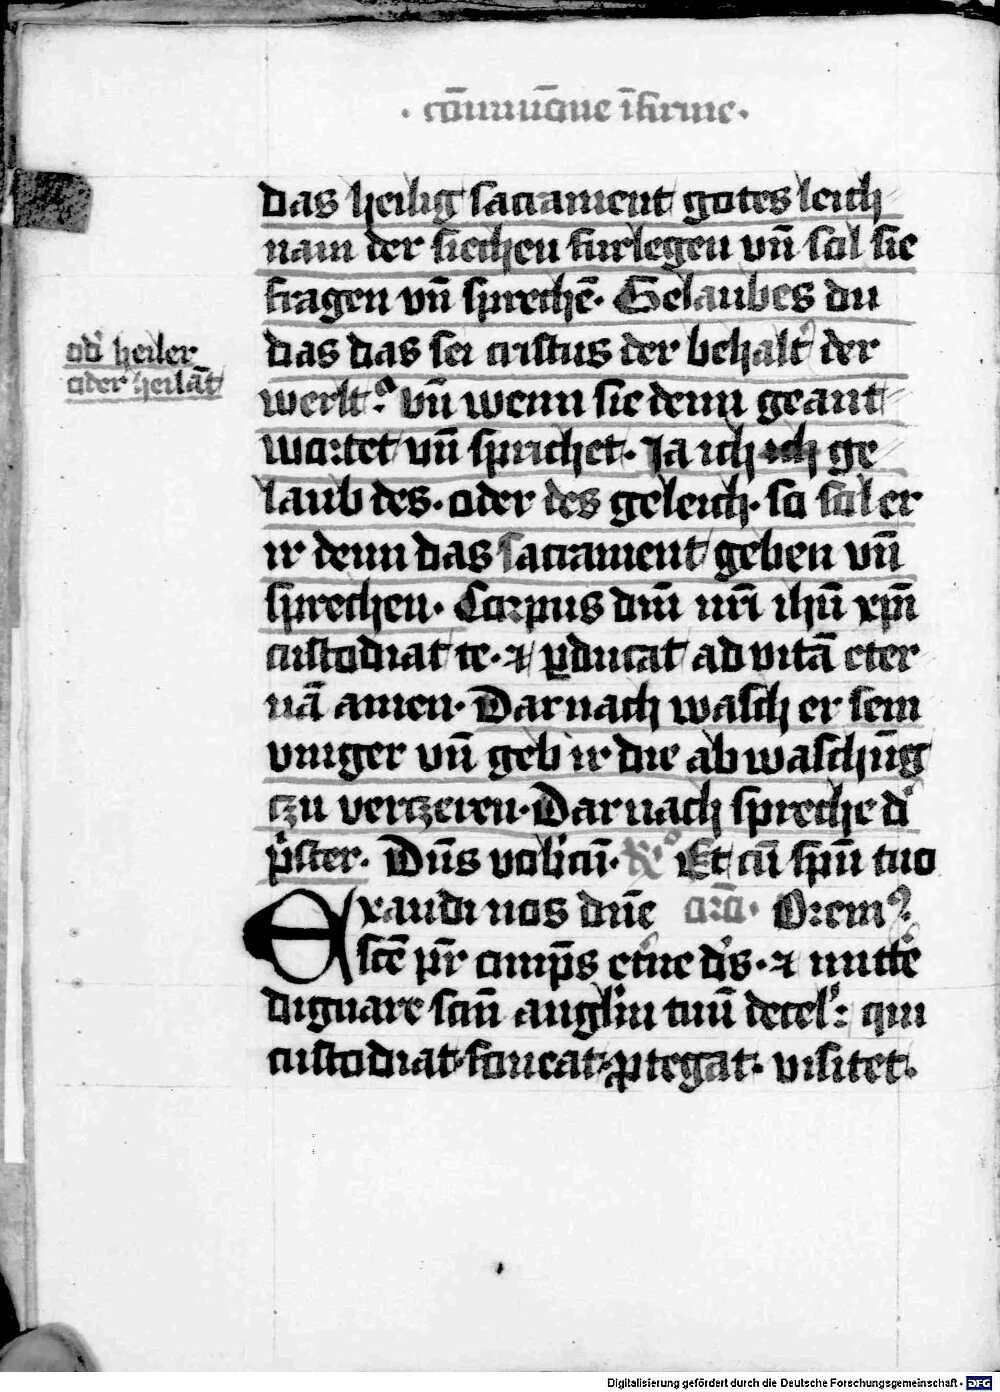 · cōmuniōne īfirme ·
das heilig sacrament gotes leich⸗
nam der siechen furlegen vn̄ sol sie
fragen vn̄ sprechē· Gelaubes du
das das sei cristus der behalt' der
od' heiler
oder heilāt
werlt? vn̄ wenn sie denn geant⸗
wortet vn̄ sprichet· Ja ich ich ge⸗
laub des· oder des geleich· so sol er
ir denn das sacrament geben vn̄
sprechen· Corpus dn̄i nr̄i ihū xp̄i
custodiat te· ⁊ ꝑducat ad vitā eter
nā amen· Darnach wasch er sein
vinger vn̄ geb ir die ab waschūg
tzu vertzeren· Darnach spreche d'
p'ster· Dn̄s vob'cū· ℟ Et cū spū tuo
Exaudi nos dn̄e or̄o· Orem9
scē pr̄ omnp̄s et'ne d's· ⁊ mitt'e
dignare scm̄ angl'm tuū de cel': qui
custodiat· foueat· ꝓtegat· visitet·
Digitalisierung gefördert durch die Deutsche Forschungsgemeinschaft - DFG